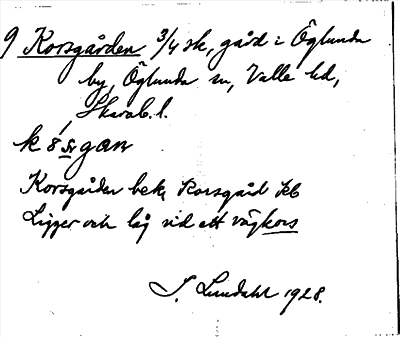 9 Korsgården 3/4 sk, gård i Öglunda
by, Öglunda sn, Valle hd,
Skarab. l.
Korsgården bek. Korsgård Jb
Ligger och låg vid ett vägkors
I. Lundahl 1928.